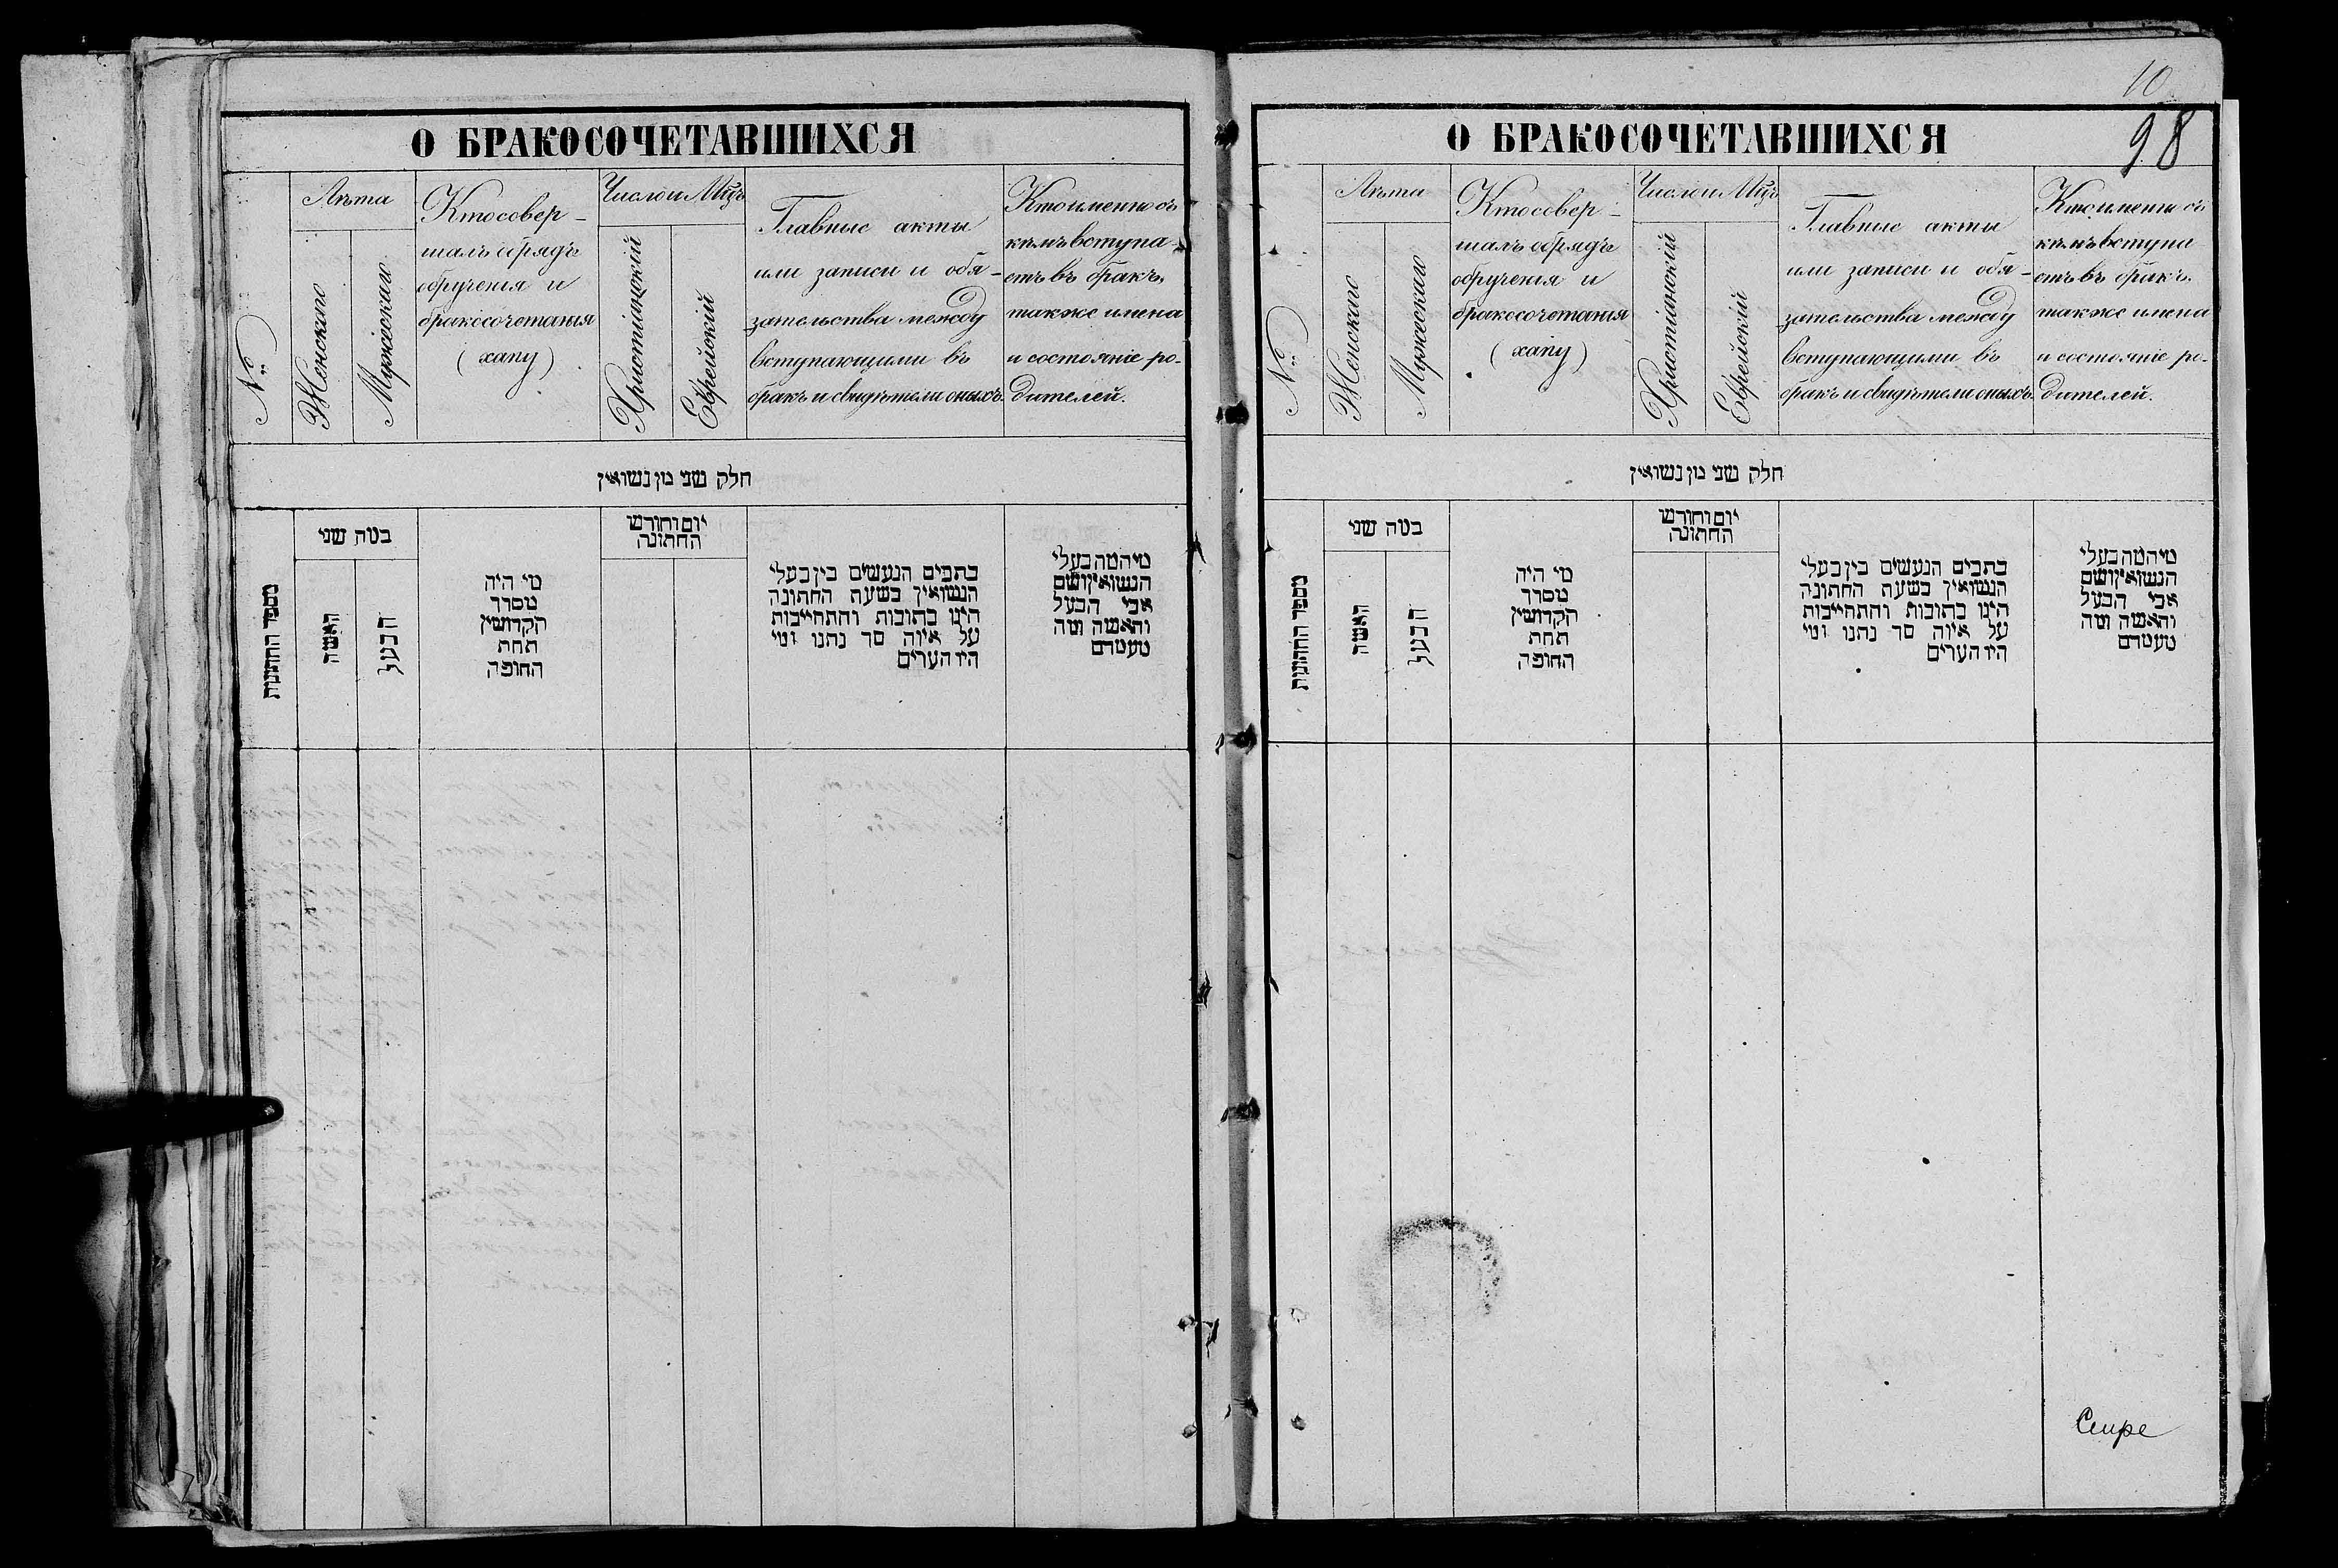 О БРАКОСОЧЕТАВШИХСЯ
№
Лѣта
Женскаго
Мужескаго
Кто совер-
шалъ обрядъ
обрученія и
бракосочетанія
(хапу)
Число и Мцъ
Христіанскій
Еврейскій
Главные акты
или записи и обя-
зательства между
вступающими въ
бракъ и свидѣтели оныхъ.
Кто именно съ
кѣмъ вступа-
етъ въ бракъ,
также имена
и состояніе ро-
дителей.
חלק שני מן נשואין
מספר החתונות
במה שני
האשה
הבעל
מי היה
מסדר
הקדושין
תחת
החופה
יום וחודש
החתונה
כתבים הנעשים בין בעלי
הנשואין בשעת החתונה
היינו כתובות והתחייבות
על איזה סך נתנו ומי
היו העדים
מיהמה בעלי
הנשואין ושם
אבי הבעל
והאשה ומה
מעמדם
10
98
О БРАКОСОЧЕТАВШИХСЯ
№
Лѣта
Женскаго
Мужескаго
Кто совер-
шалъ обрядъ
обрученія и
бракосочетанія
(хапу)
Число и Мцъ
Христіанскій
Еврейскій
Главные акты
или записи и обя-
зательства между
вступающими въ
бракъ и свидѣтели оныхъ.
Кто именно съ
кѣмъ вступа
етъ въ бракъ,
также имена
и состояніе ро-
дителей.
חלק שני מן נשואין
מספר החתונות
במה שני
האשה
הבעל
מי היה
מסדר
הקדושין
תחת
החופה
יום וחודש
החתונה
כתבים הנעשים בין בעלי
הנשואין בשעת החתונה
היינו כתובות והתחייבות
על איזה סך נתנו ומי
היו העדים
מיהמה בעלי
הנשואין ושם
אבי הבעל
והאשה ומה
מעמדם